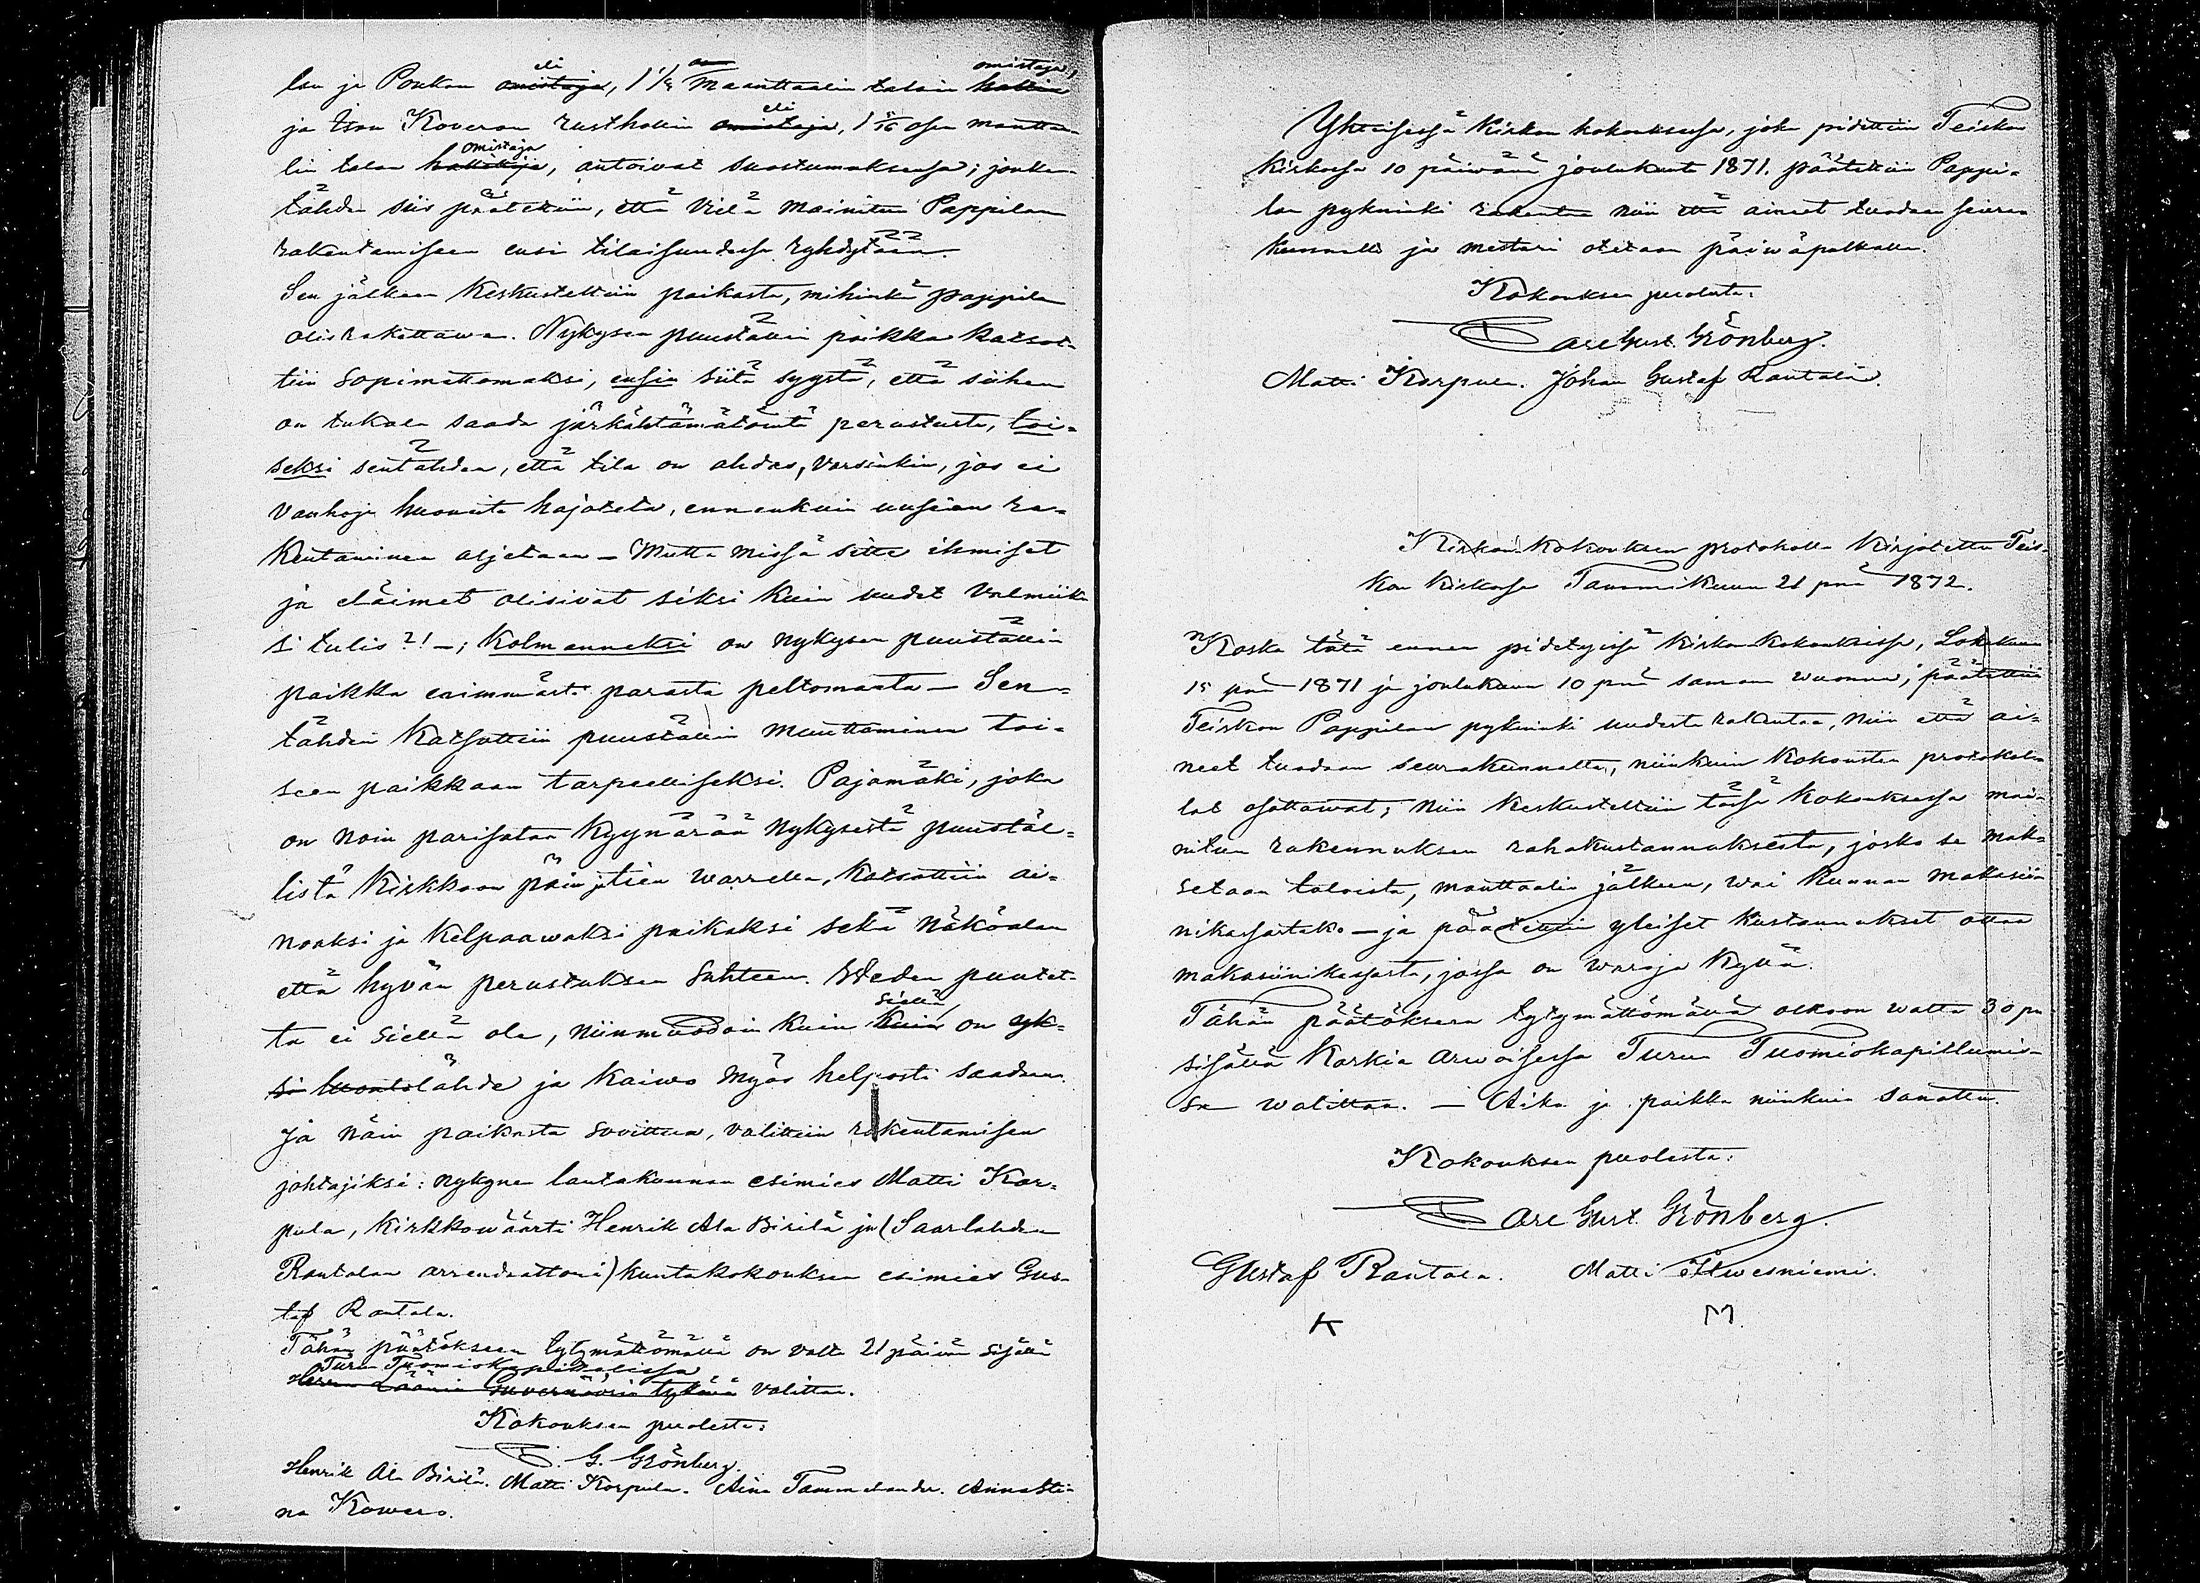 lan ja Poukan eli omistaja, 1 1/8 Manttaalin taloin omistaja, hallia
ja Ison Koveron rusthollin eli omistaja, 1 5/16 osan mantta-
lin talon omistaja haltija, antoivat suostumuksensa; jonka-
tähden siis päätettiin, että vielä mainitun Pappilan
rakentamiseen ensi tilaisuudessa ryhdytään.
Sen jälkeen keskusteltiin paikasta, mihinkä pappila
olis rakettawa. Nykysen puuställin paikka katsot-
tiin sopimattomaksi, ensin siitä syystä, että siihen
on tukala saada järkähtämätöintä perustusta, toi-
seksi sentähden, että tila on ahdas, varsinkin, jos ei
vanhoja huoneita hajoteta, ennenkuin uusien ra-
kentaminen aljetaan – Mutta missä sitte ihmiset
ja eläimet olisivat siksi kuin uudet valmiik-
si tulis?! –; Kolmanneksi on nykysen puuställin
paikka enimmäst. parasta peltomaata – Sen-
tähden katsottiin puuställin muuttaminen toi-
seen paikkaan tarpeelliseksi. Pajamäki, joka
on noin parisataa kyynärää nykysestä puustäl-
listä Kirkkoon päin jtien warrella, katsottiin ai-
noaksi ja kelpaawaksi paikaksi sekä näköalan
että hyvän perustuksen suhteen. Weden puutet-
ta ei siellä ole, niinmuodoin kuin siellä kuin on yk-
si luontolähde ja kaiwo myös helposti saadaan.
Ja näin paikasta sovittua, valittiin rakentamisen
johtajiksi: nykynen lautakunnan esimies Matti Kor-
pula, kirkkowäärti Henrik Ala Birilä ja (Saarlahden
Rautalan arrendaattori) kuntakokouksen esimies Gus-
taf Rautala.
Tähän päätökseen tytymättömällä on valta 21 päivän sisällä
Turun Tuomiokapitelissa
Herra Läänin Guvernöörin tykönä valittaa.
Kokouksen puolesta:
C. G. Grönberg.
Henrik Ala Birilä. Matti Korpula. Aina Tammelander. Annasti-
na Kowero.
Yhteisessä kirkon kokouksessa, joka pidettiin Teiskon
kirkossa 10 päiwänä joulukuuta 1871. päätettiin Pappi-
lan pykninki rakentaa niin että aineet tuodaan seuran
kunnalta ja mestari otetaan päiwäpalkalla.
Kokouksen puolesta:
Carl Gust. Grönberg.
Matti Korpula. Johan Gustaf Rautala.
Kirkon Kokouksen protokolla kirjotettu Teis-
kon kirkossa Tammikuun 21 pnä 1872.
Koska tätä ennen pidetyissä kirkon kokouksissa, Lokakuun
15 pnä 1871 ja joulukuun 10 pnä saman wuonna, päätettiin
Teiskon Pappilan pykninki uudesta rakentaa, niin että ai-
neet tuodaan seurakunnalta, niinkuin kokousten protokol-
lat osottawat; niin keskusteltiin tässä kokouksessa mai-
nitun rakennuksen rahakustannuksesta, josko se mak-
setaan taloista, manttaalin jälkeen, wai kunnan makasii-
nikassastako – ja päätettiin yleiset kustannukset ottaa
makasiinikassasta, jossa on waroja kyllä.
Tähän päätökseen tytymättömällä olkoon walta 30 pn
sisällä Korkia arwoisessa Turun Tuomiokapitlumis-
sa walittaa. – Aika ja paikka niinkuin sanottu.
Kokouksen puolesta:
Carl Gust. Grönberg.
Gustaf Rautala. Matti Ilwesniemi.
K M